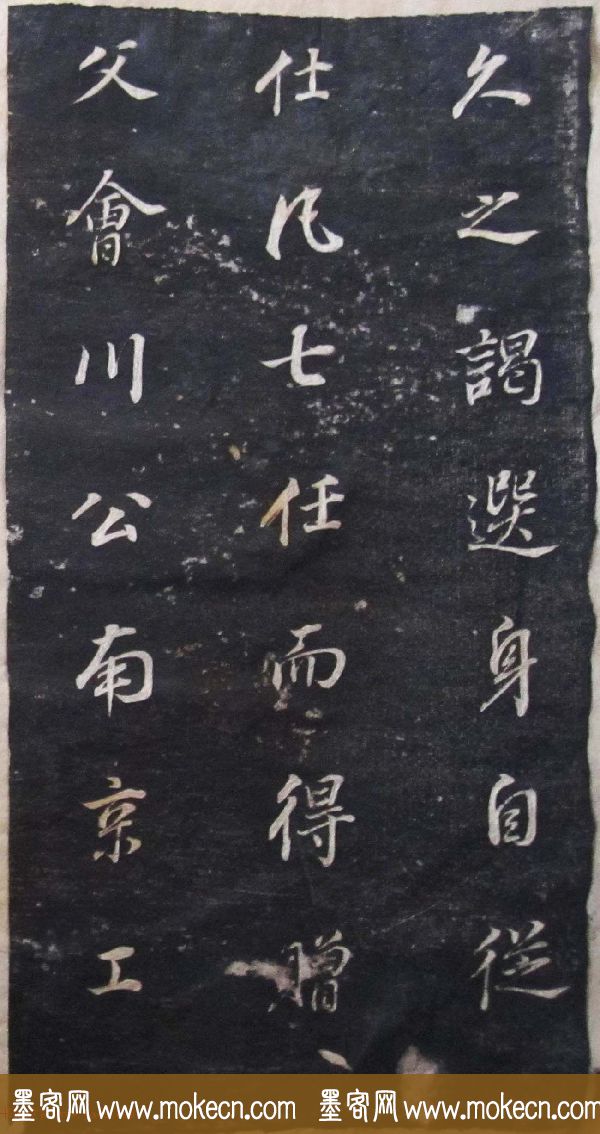 久之謁選身自從
仕凡七任而得贈
父會川公南京工
墨客网 www.mokecn.com 墨客网 www.mokecn.com